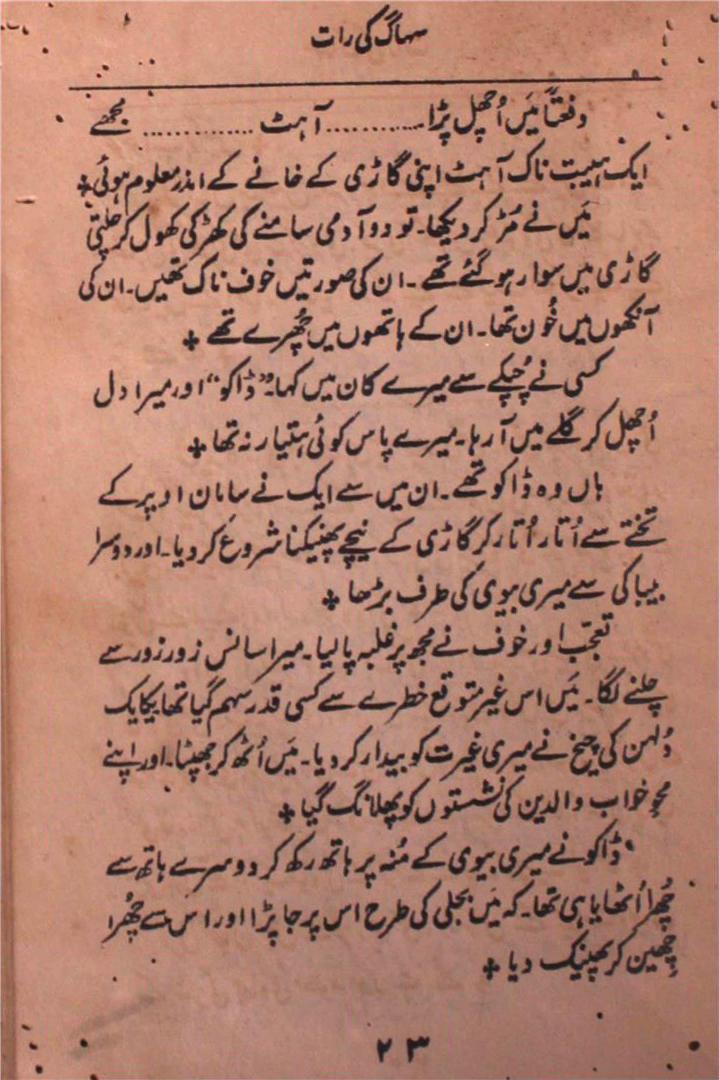 سہاگ کی رات
دفعتاً میَں اُچھل پڑا ........... آہٹ ............ مجھے
ایک ہیبت ناک آہٹ اپنی گاڑی کے خانے کے اندر معلوم ہوئی ۔
میَں نے مُڑ کر دیکھا۔ تو دو آدمی سامنے کی کھڑکی کھول کر چلتی
گاڑی میں سوار ہو گئے تھے ۔ ان کی صورتیں خوف ناک تھیں۔ ان کی
آنکھوں میں خُون تھا۔ ان کے ہاتھوں میں چھُرے تھے ۔
کسی نے چُپکے سے میرے کان میں کہا۔ ”ڈاکو“ اور میرا دل
اُچھل کر گلے میں آ رہا۔ میرے پاس کوئی ہتیار نہ تھا ۔
ہاں وہ ڈاکو تھے۔ ان میں سے ایک نے سامان اوپر کے
تختے سے اُتار اُتار کر گاڑی کے نیچے پھینکنا شروع کر دیا۔ اور دوسرا
بیباکی سے میری بیوی کی طرف بڑھا ۔
تعجّب اور خوف نے مجھ پر غلبہ پا لیا۔ میرا سانس زور زور سے
چلنے لگا۔ میَں اس غیر متوقع خطرے سے کسی قدر سہم گیا تھا یکایک
دُلہن کی چیخ نے میری غیرت کو بیدار کر دیا۔ میَں اُٹھ کر جھپٹا۔ اور اپنے
محوِ خواب والدین کی نشستوں کو پھلانگ گیا ۔
ڈاکو نے میری بیوی کے مُنہ پر ہاتھ رکھ کر دوسرے ہاتھ سے
چُھرا اُٹھایا ہی تھا۔ کہ میَں بجلی کی طرح اس پر جا پڑا اور اس سے چھُرا
چھین کر پھینک دیا ۔
۲۳